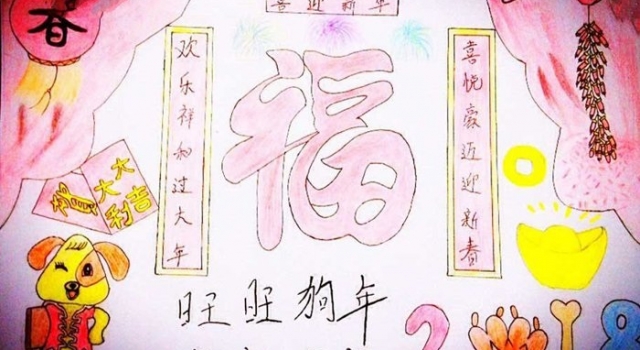 喜迎新年
春
欢乐祥和过大年
福
喜悦豪迈迎新春
大大
吉利
旺旺狗年
2018